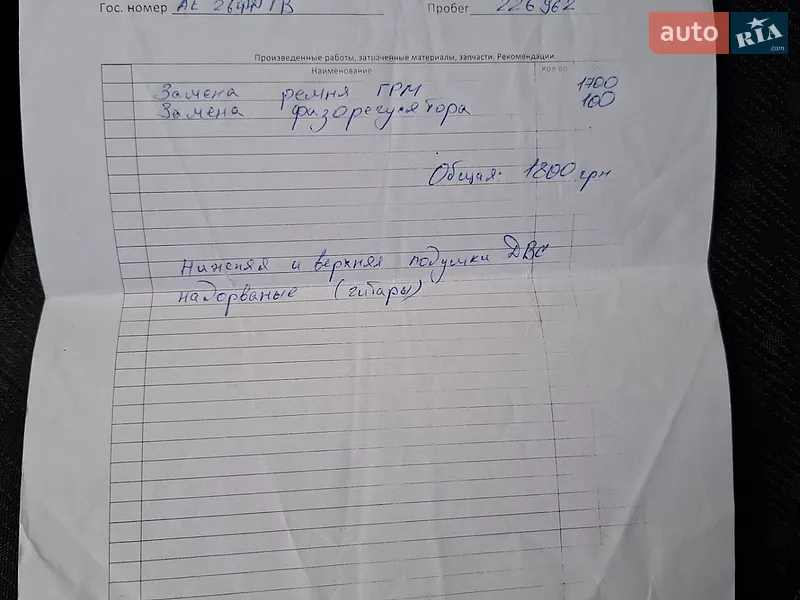 Гос. номер Пробег 226962
auto RIA .com
Произведенные работы, затраченные материалы, запчасти. Рекомендации.
Наименование Кол-во
Замена ремня ГРМ 1700
Замена фазорегулятора 100
Общая: 1800 грн
Нижняя и верхняя подушки ДВС
надорваные (гитары)